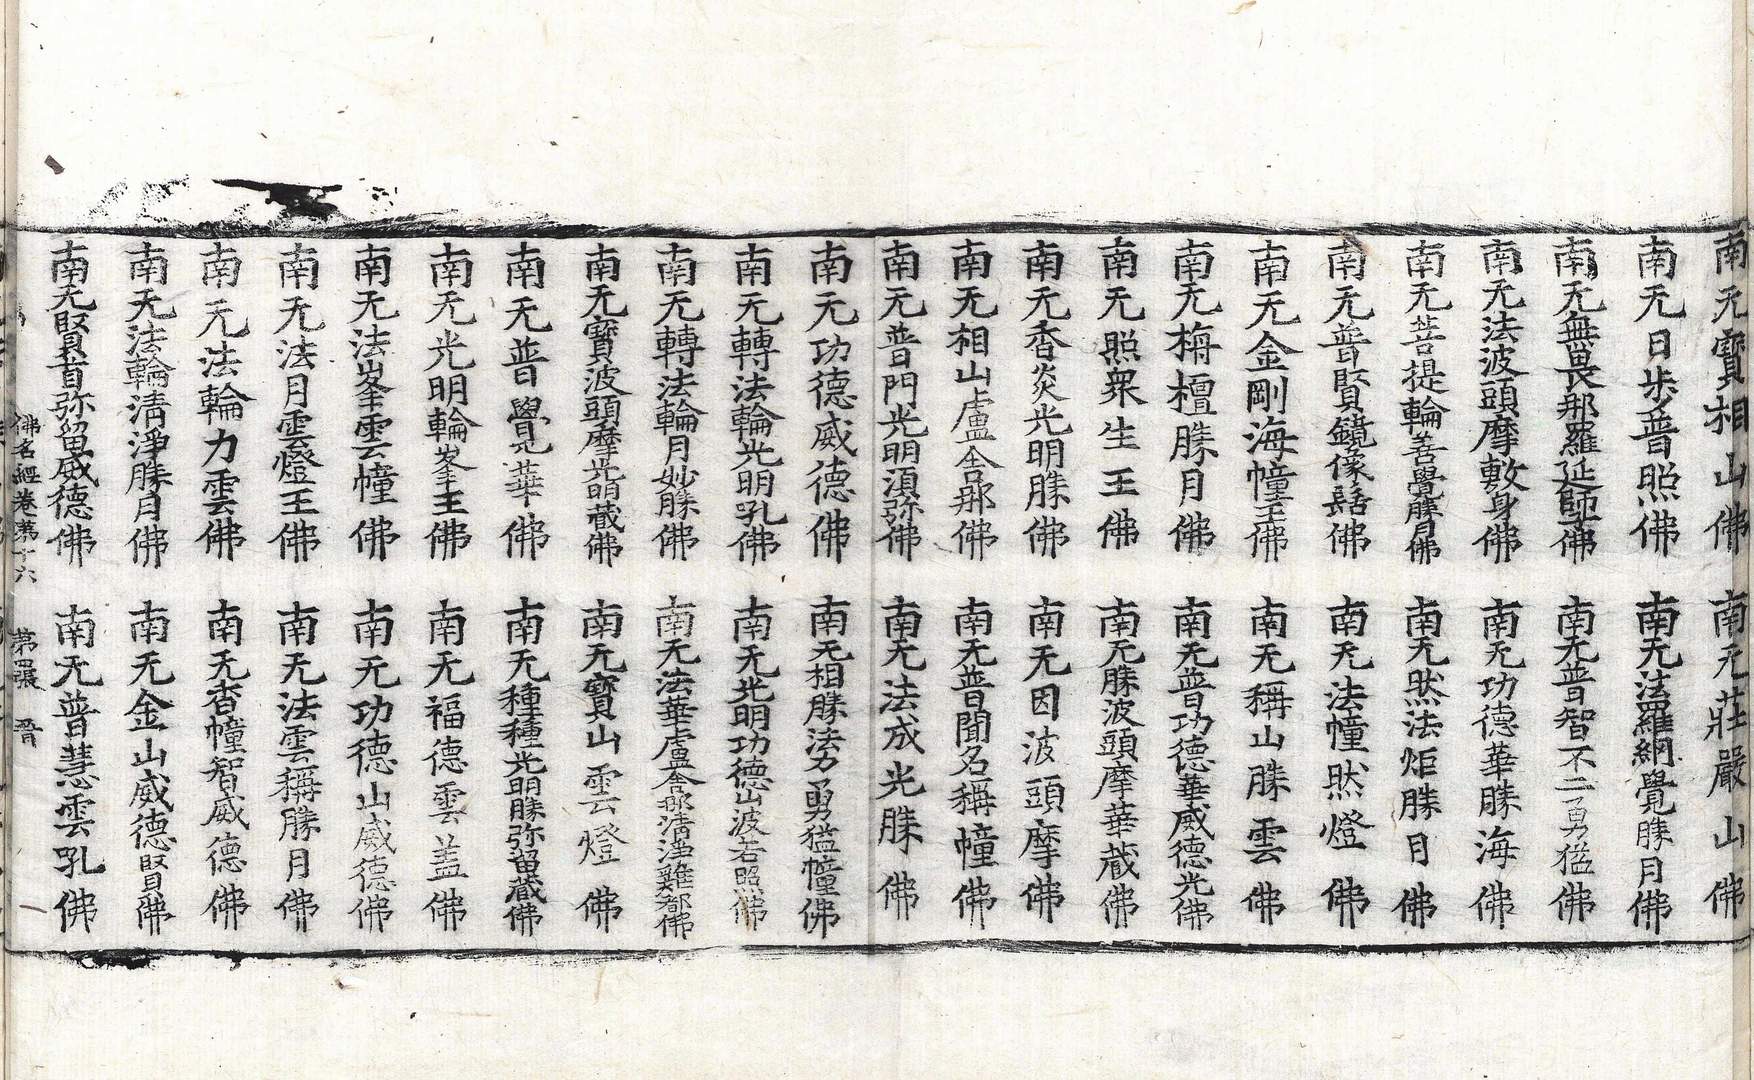 南无寶相山佛　南无莊嚴山佛
南无日步普照佛　南无法羅網覺勝月佛
南无無畏那羅延師佛　南无普智不二勇猛佛
南无法波頭摩敷身佛　南无功德華勝海佛
南无菩提輪善覺勝月佛　南无然法炬勝月佛
南无普賢鏡像髻佛　南无法幢然燈佛
南无金剛海幢王佛　南无稱山勝雲佛
南无栴檀勝月佛　南无普功德華威德光佛
南无照衆生王佛　南无勝波頭摩華藏佛
南无香炎光明勝佛　南无因波頭摩佛
南无相山盧舍那佛　南无普聞名稱幢佛
南无普門光明須弥佛　南无法成光勝佛
南无功德威德佛　南无相勝法力勇猛幢佛
南无轉法輪光明吼佛　南无光明功德山波若照佛
南无轉法輪月妙勝佛　南无法華盧舍那清淨難都佛
南无寶波頭摩光明藏佛　南无寶山雲燈佛
南无普覺華佛　南无種種光明勝弥留藏佛
南无光明輪峯王佛　南无福德雲盖佛
南无法峯雲幢佛　南无功德山威德佛
南无法月雲燈王佛　南无法雲稱勝月佛
南无法輪力雲佛　南无香幢智威德佛
南无法輪清淨勝月佛　南无金山威德賢佛
南无賢首弥留威德佛　南无普慧雲吼佛
佛名經卷第十六　第四張　晋